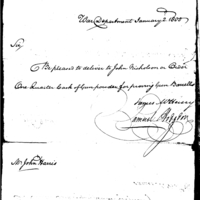 War Department January 2 1800
Sir
Be pleased to deliver to John Nicholson or Order
One Quarter Cask of Gun powder for proving Gun Barrells
James McHenry
Samuel Hodgdon
Mr John Harris